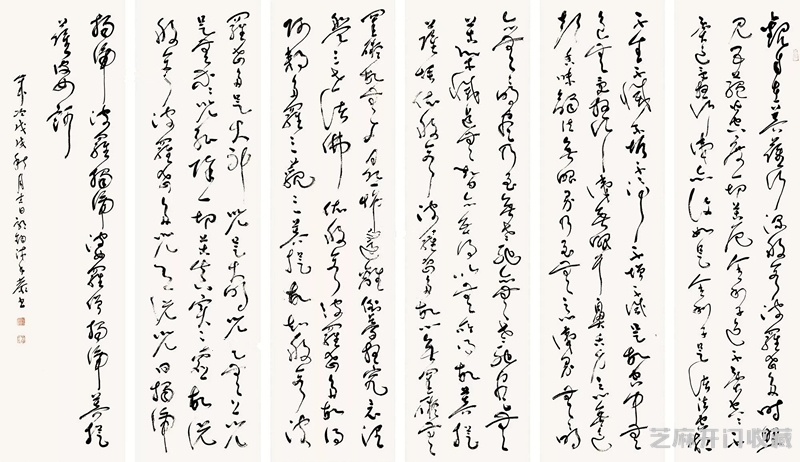 觀自在菩薩行深般若波羅蜜多時照
見五蘊皆空度一切苦厄舍利子色不異空空不
異色受想行識亦復如是舍利子是諸法空相
不生不滅不垢不淨不增不減是故空中無
色無受想行識無眼耳鼻舌身意無色
聲香味觸法無眼界乃至無意識界無無明
亦無無明盡乃至無老死亦無老死盡無
苦集滅道無智亦無得以無所得故菩提
薩埵依般若波羅蜜多故心無罣礙無
罣礙故無有恐怖遠離顛倒夢想究竟涅
槃三世諸佛依般若波羅蜜多故得
阿耨多羅三藐三菩提故知般若波
羅蜜多是大神咒是大明咒是無上咒
是無等等咒能除一切苦真實不虛故說
般若波羅蜜多咒即說咒曰揭諦
揭諦波羅揭諦波羅僧揭諦菩提
薩婆訶
歲次戊戌秋月
芝麻开门收藏